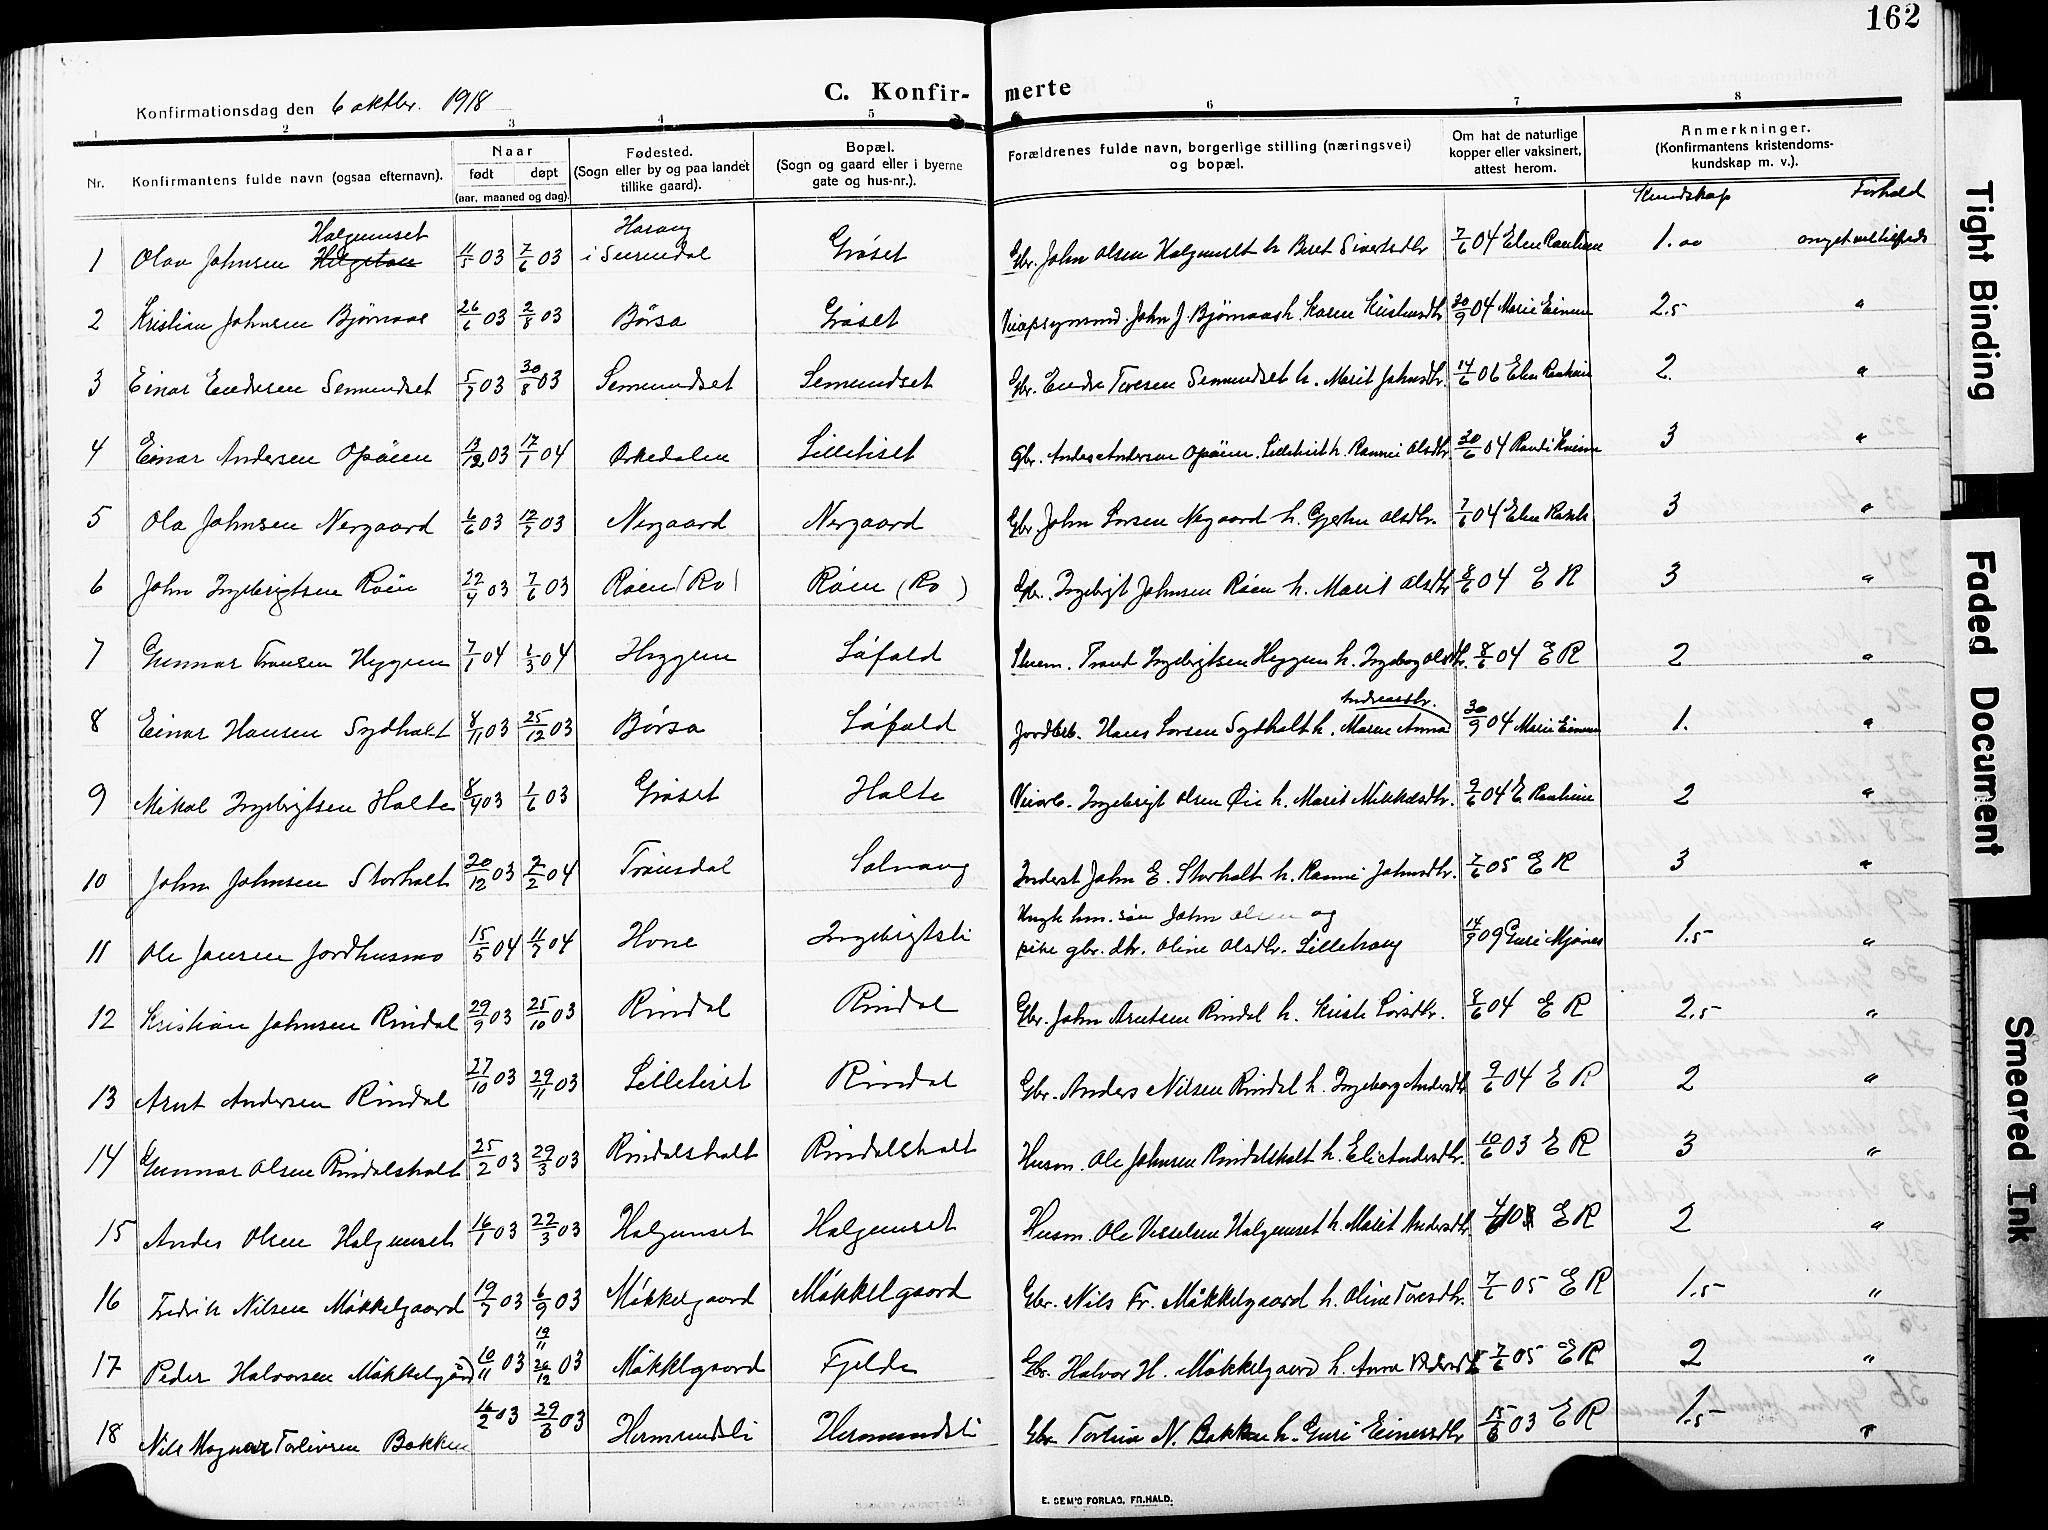 162
C. Konfir- merte
Konfirmationsdag den 6 oktbr. 1918
1 2 3 4 5 6 7 8
Nr.
Konfirmantens fulde navn (ogsaa efternavn).
Naar
født døpt
(aar, maaned og dag).
Fødested.
(Sogn eller by og paa landet
tillike gaard).
Bopæl.
(Sogn og gaard eller i byerne
gate og hus-nr.).
Forældrenes fulde navn, borgerlige stilling (næringsvei)
og bopæl.
Om hat de naturlige
kopper eller vaksinert,
attest herom.
Anmerkninger.
(Konfirmantens kristendoms-
kundskap m. v.).
Kundskap Forhold
Halgunset Harang
1 Olav Johnsen 11/5 03 7/6 03 i Surendal Grøset Gbr. John Olsen Halgunset h. Beret Sivertsdtr 7/6 04 1.00 meget tilfreds
2 Kristian Johnsen Bjørnaas 26/6 03 2/8 03 Børsa Grøset John J. Bjørnaas h. Karen 30/9 04 Marie 2.5 "
3 Einar Endresen Semundset 5/7 03 30/8 03 Semundset Semundset Gbr. Endre Toresen Semundset h. Marit Johnsdtr. 14/6 06 2. "
4 Einar Andersen Opøien 13/12 03 17/1 04 Orkedalen Lilletiset Gbr. Anders Andersen Opøien. Lilletiset h. Rannei Olsdtr. 30/6 04 3 "
5 Ola Johnsen Nergaard 6/6 03 12/7 03 Nergaard Nergaard Gbr. John Larsen Nergaard h. Olsdtr. 7/6 04 3 "
6 John Ingebrigtsen Røen 22/4 03 7/6 03 Røen (Ro) Røen (Ro) Gbr. Ingebrigt Johnsen Røen h. Marit Olsdtr 8/6 04 E R 3 "
7 Gunnar Tronsen Hyggen 7/1 04 1/3 04 Hyggen Løfald Trond Ingebrigtsen Heggem h. Ingeborg Olsdtr. 8/6 04 E R 2 "
Andreasdtr.
8 Einar Hansen Sydhalt 8/11 03 25/12 03 Børsa Løfald Jordbrb. Hans Larsen Sydhalt h. Maren Anna 30/9 04 Marie 1. "
9 Mikal Ingebrigtsen Halte 8/4 03 1/6 03 Grøset Halte Ingebrigt Olsen Øie h. Marit Mikkelsdtr. 9/6 04 E 2 "
10 John Johnsen Storhalt 20/12 03 2/2 04 Trønsdal Solvang Inderst John E. Storhalt h. Rannei Johnsdtr. 7/6 05 E R 3 "
Ungk. hm. søn John Olsen og
11 Ole Jansen Jordhusmo 15/5 04 11/7 04 Hone Ingebrigtsli pike gbr. dtr. Oline Olsdtr. Lillehaug 14/9 09 Guri Mjønes 1.5 "
12 Kristian Johnsen Rindal 29/9 03 25/10 03 Rindal Rindal Gbr. John Arntsen Rindal h. Larsdtr. 8/6 04 E R 2.5 "
13 Arnt Andersen Rindal 27/10 03 29/11 03 Lilletiset Rindal Gbr. Anders Nilsen Rindal h. Ingeborg Andersdtr 9/6 04 E R 2 "
14 Gunnar Olsen Rindalshalt 25/2 03 29/3 03 Rindalshalt Rindalshalt Husm. Ole Johnsen Rindalshalt h. Eli Andersdtr. 10/6 03 E R 3 "
15 Anders Olsen Halgunset 16/1 03 22/3 03 Halgunset Halgunset Husm. Ole Halgunset h. Marit Andersdtr E R 2 "
16 Fredrik Nilsen Møkkelgaard 19/7 03 6/9 03 Møkkelgaard Møkkelgaard Gbr. Nils Fr. Møkkelgaard h. Oline Toresdtr. 7/6 05 E R 1.5 "
19/11
17 Peder Halvorsen Møkkelgård 10/11 03 26/12 03 Møkkelgaard Fjelde Gbr. Halvor H. Møkkelgaard h. Anna 7/6 05 E R 2 "
18 Nils Magnar Torlivsen Bakken 03 29/3 03 Hermundsli Hermundsli Gbr. N. Bakken h. Guri Einersdtr 15/6 03 E R 1.5 "
E. SEM'S FORLAG, FR.HALD.
Tight Binding
Faded Document
Smeared Ink